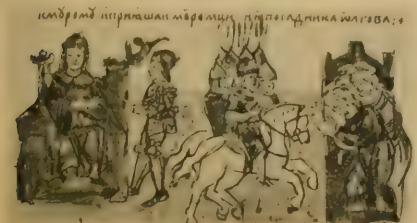 кмꙋромꙋ иприꙗшаи мꙋромци и ꙗпосадника ѡлгова: